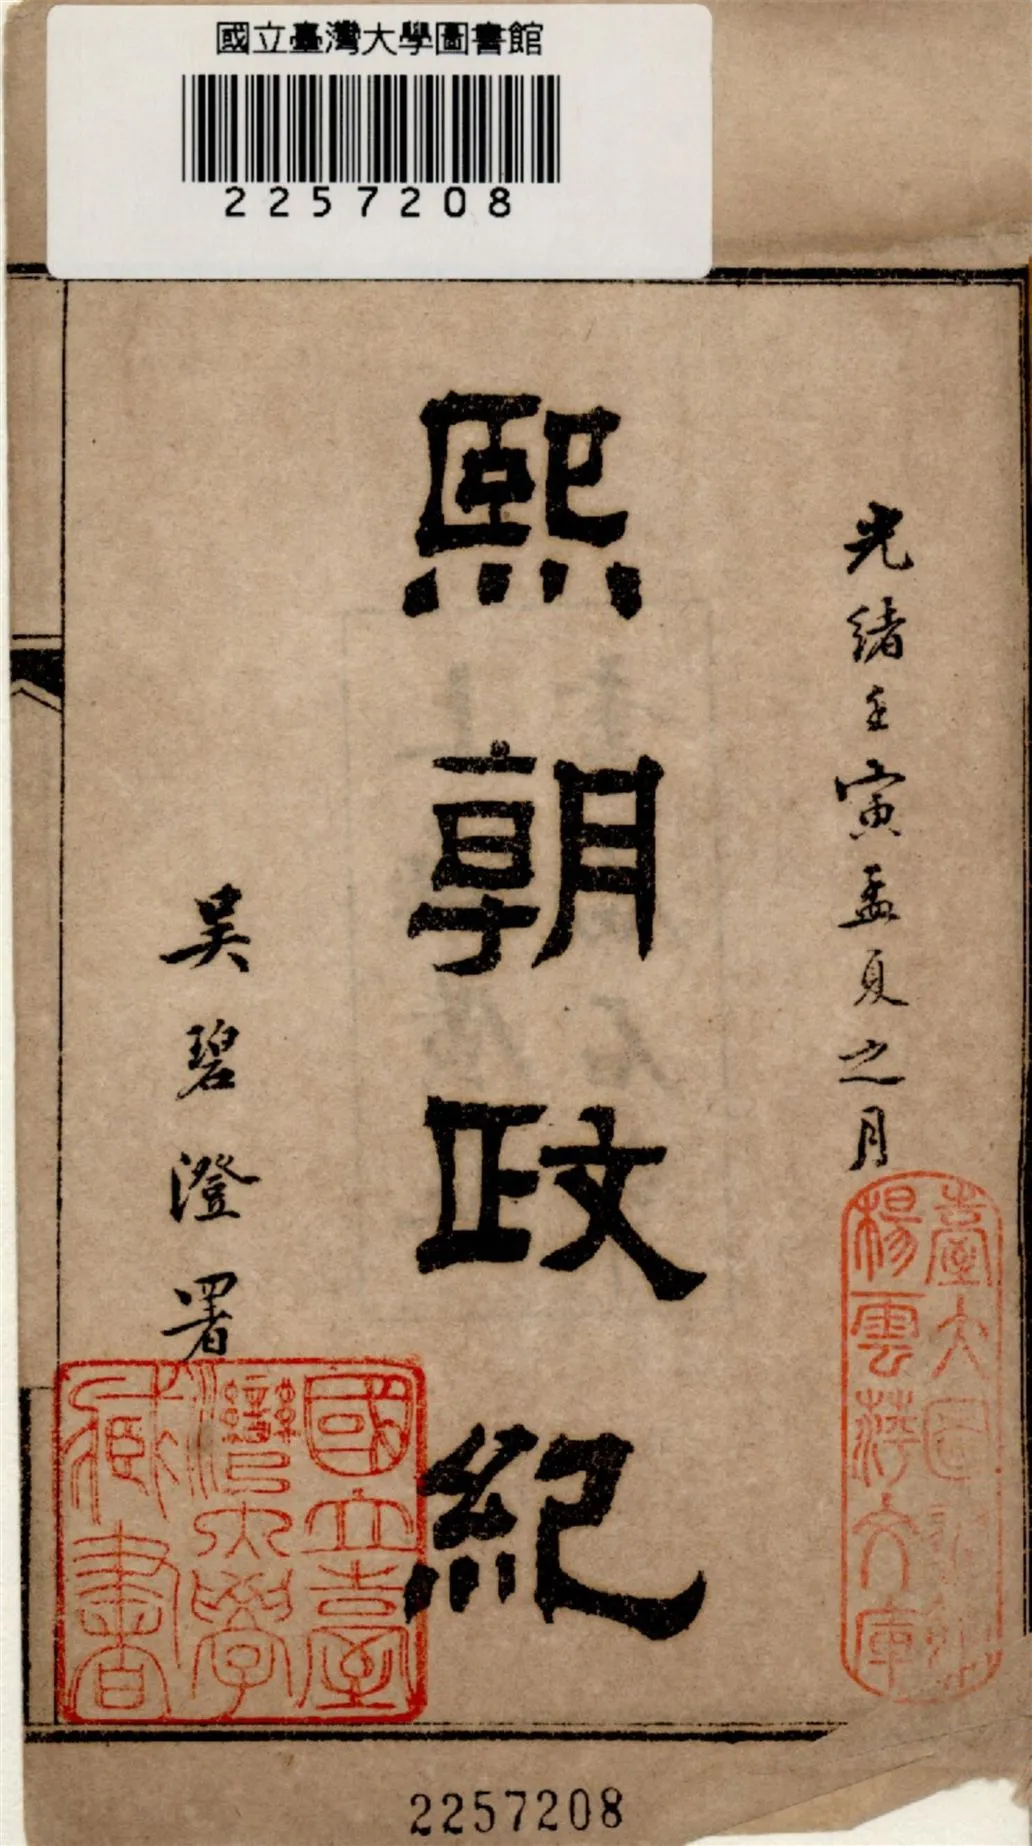 國立臺灣大學圖書館
2257208
光緒壬寅孟夏之月
熙朝政紀
吳碧澄署
國立臺
灣大學
藏書
楊雲萍文庫
2257208